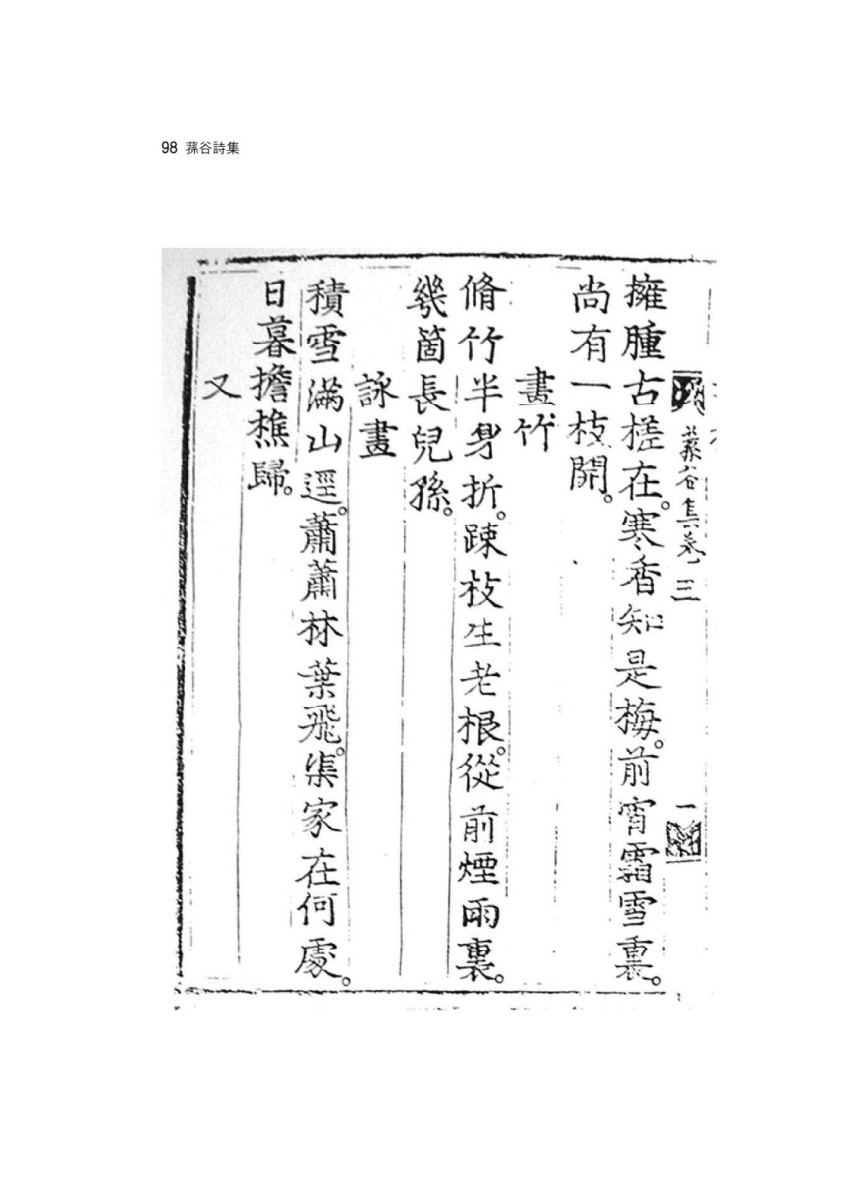 98 蓀谷詩集
蓀谷集卷三
一
擁腫古槎在。寒香知是梅。前宵霜雪裏。
尚有一枝開。
畫竹
脩竹半身折。踈枝生老根。從前煙雨裏。
幾箇長兒孫。
詠畫
積雪滿山逕。蕭蕭林葉飛。渠家在何處。
日暮擔樵歸。
又